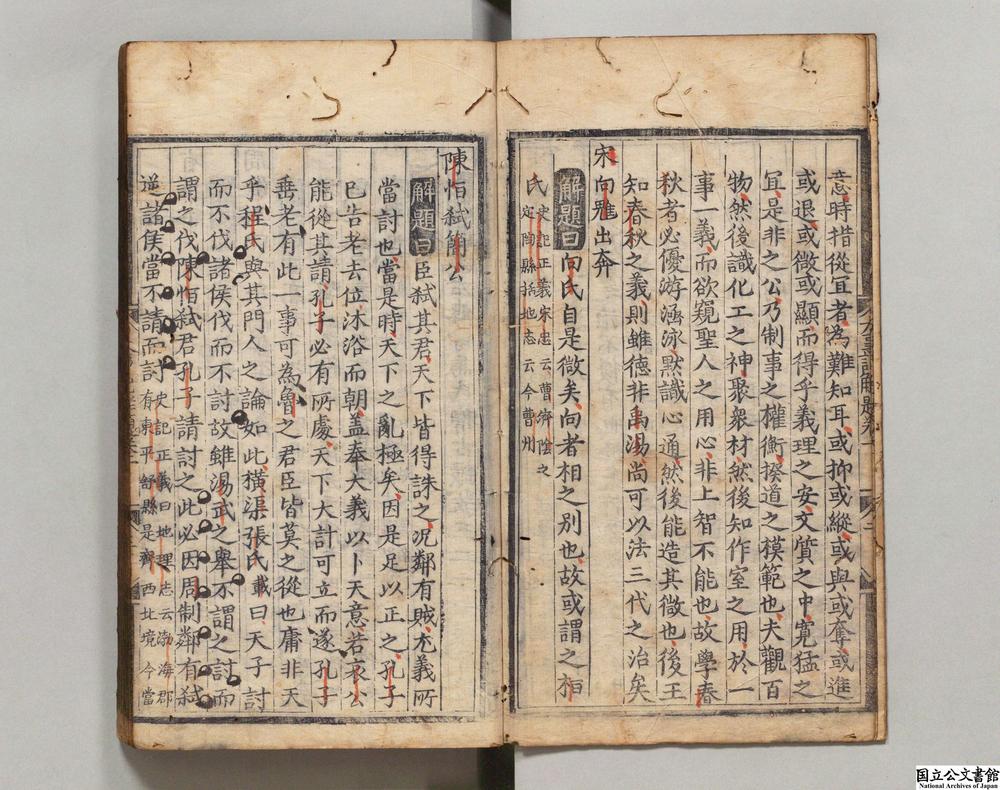 意時措從宜者為難知耳或抑或縱或與或奪或進
或退或微或顯而得乎義理之安文質之中寬猛之
宜是非之公乃制事之權衡揆道之模範也夫觀百
物然後識化工之神聚衆材然後知作室之用於一
事一義而欲窺聖人之用心非上智不能也故學春
秋者必優游涵泳默識心通然後能造其微也後王
知春秋之義則雖德非禹湯尚可以法三代之治矣
宋向魋出奔
解題曰向氏自是微矣向者相之别也故或謂之桓
氏史記正義宋忠云曹濟陰之
定陶縣括地志云今曹州
陳恒弑簡公
解題曰臣弑其君天下皆得誅之况鄰有賊尤義所
當討也當是時天下之亂極矣因是足以正之孔子
已告老去位沐浴而朝盖奉大義以卜天意若哀公
能從其請孔子必有所處天下大計可立而遂孔子
垂老有此一事可為魯之君臣皆莫之從也庸非天
乎程氏與其門人之論如此横渠張氏載曰天子討
而不伐諸侯伐而不討故雖湯武之舉不謂之討而
謂之伐陳恒弑君孔子請討之此必因周制鄰有弑
逆諸侯當不請而討史記正義曰地理志云渤海郡
有東平舒縣是齊西北境今當
国立公文書館
National Archives of Japan